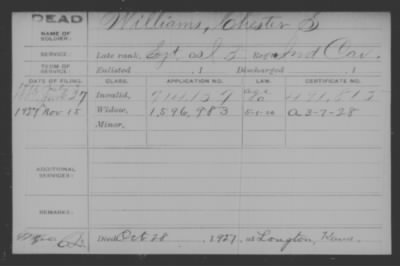 DEAD
NAME OF SOLDIER:
Williams, Chester S
SERVICE:
Late rank, Sgt Co I 2 Reg't Ind Cav.
TERM OF SERVICE:
Enlisted , 1 Discharged , 1
DATE OF FILING.
CLASS.
APPLICATION NO.
LAW.
CERTIFICATE NO.
Invalid,
1927 Nov 15
Widow,
1,596,983
5-1-20
A 3-7-28
Minor,
ADDITIONAL SERVICES:
REMARKS:
Died Oct 28 , 1927, at Longton, Kans.